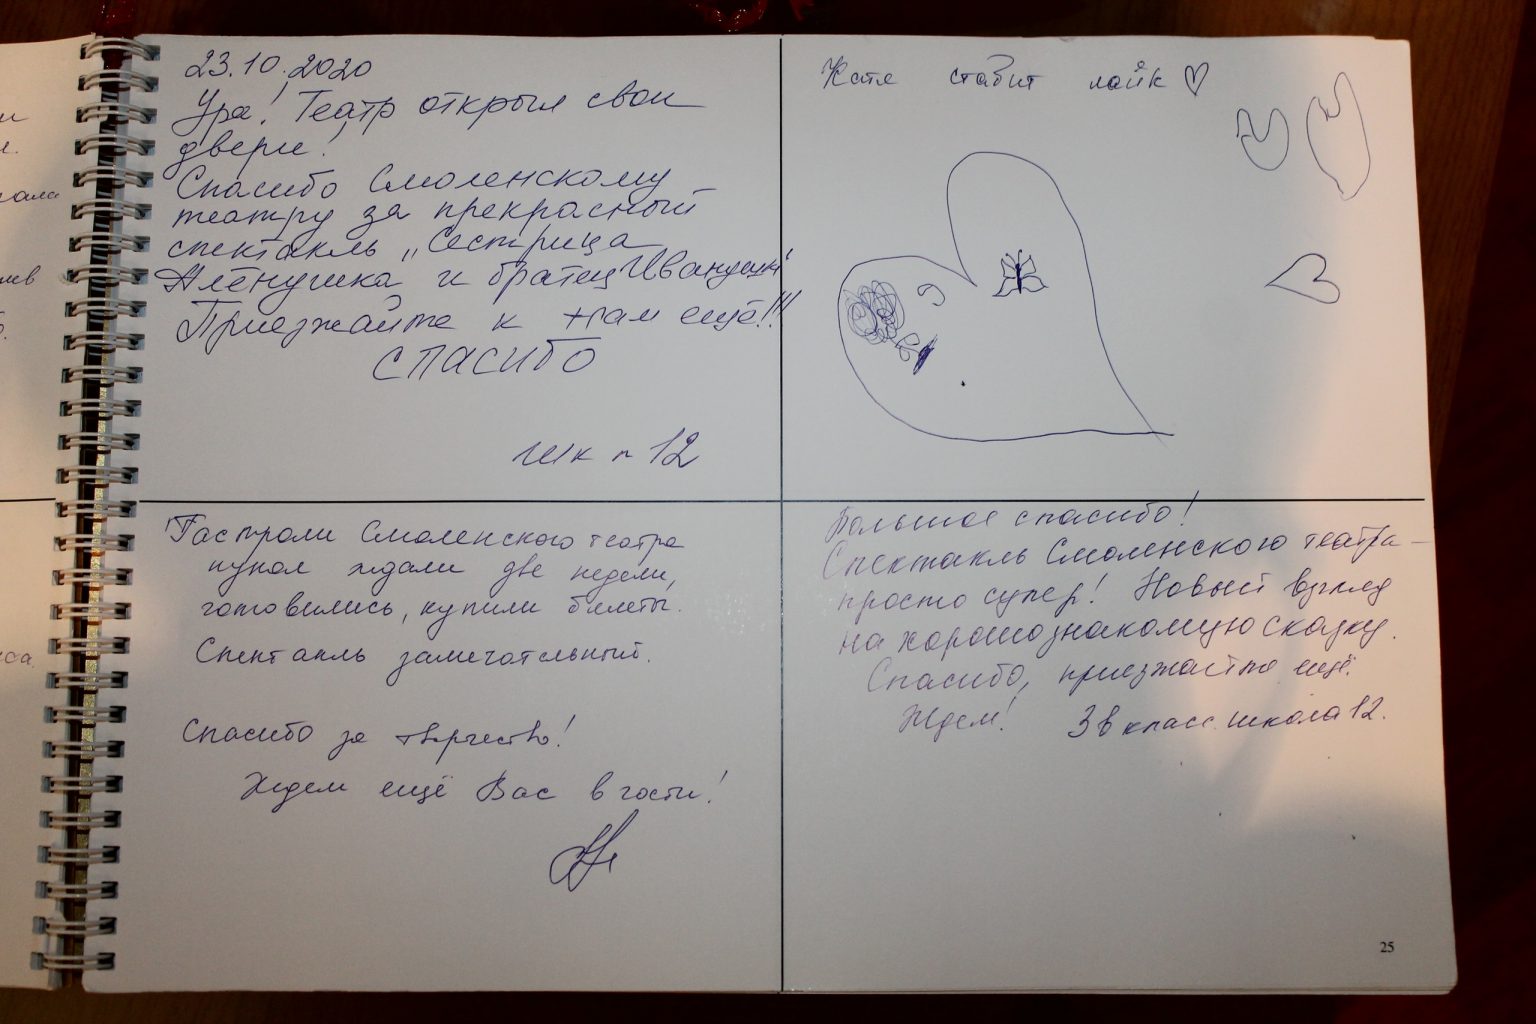 23.10.2020
Ура! Театр открыл свои
двери!
Спасибо Смоленскому
театру за прекрасный
спектакль „Сестрица
Алёнушка и братец Иванушка"
Приезжайте к нам ещё!!!
СПАСИБО
шк n 12
Катя ставит лайк ♡
Гастроли Смоленского театра
кукол ждали две недели,
готовились, купили билеты.
Спектакль замечательный.
Спасибо за творчество!
Ждем ещё Вас в гости!
Большое спасибо!
Спектакль Смоленского театра –
просто супер! Новый взгляд
на хорошо знакомую сказку.
Спасибо, приезжайте ещё.
Ждем! 3в класс школа 12.
25